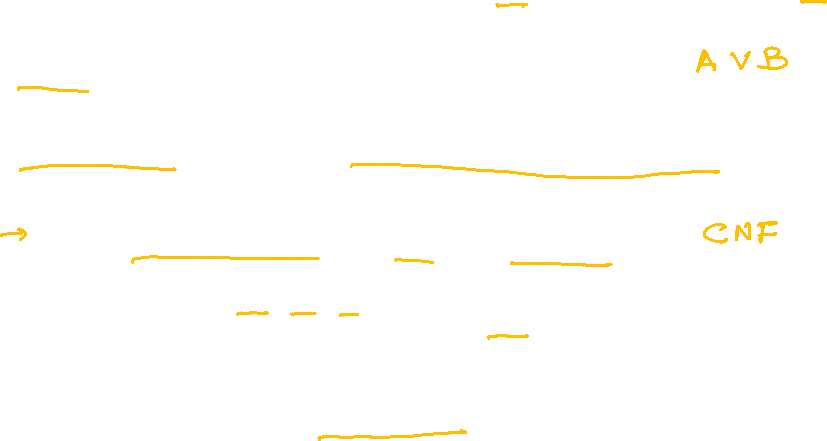 A V B
CNF